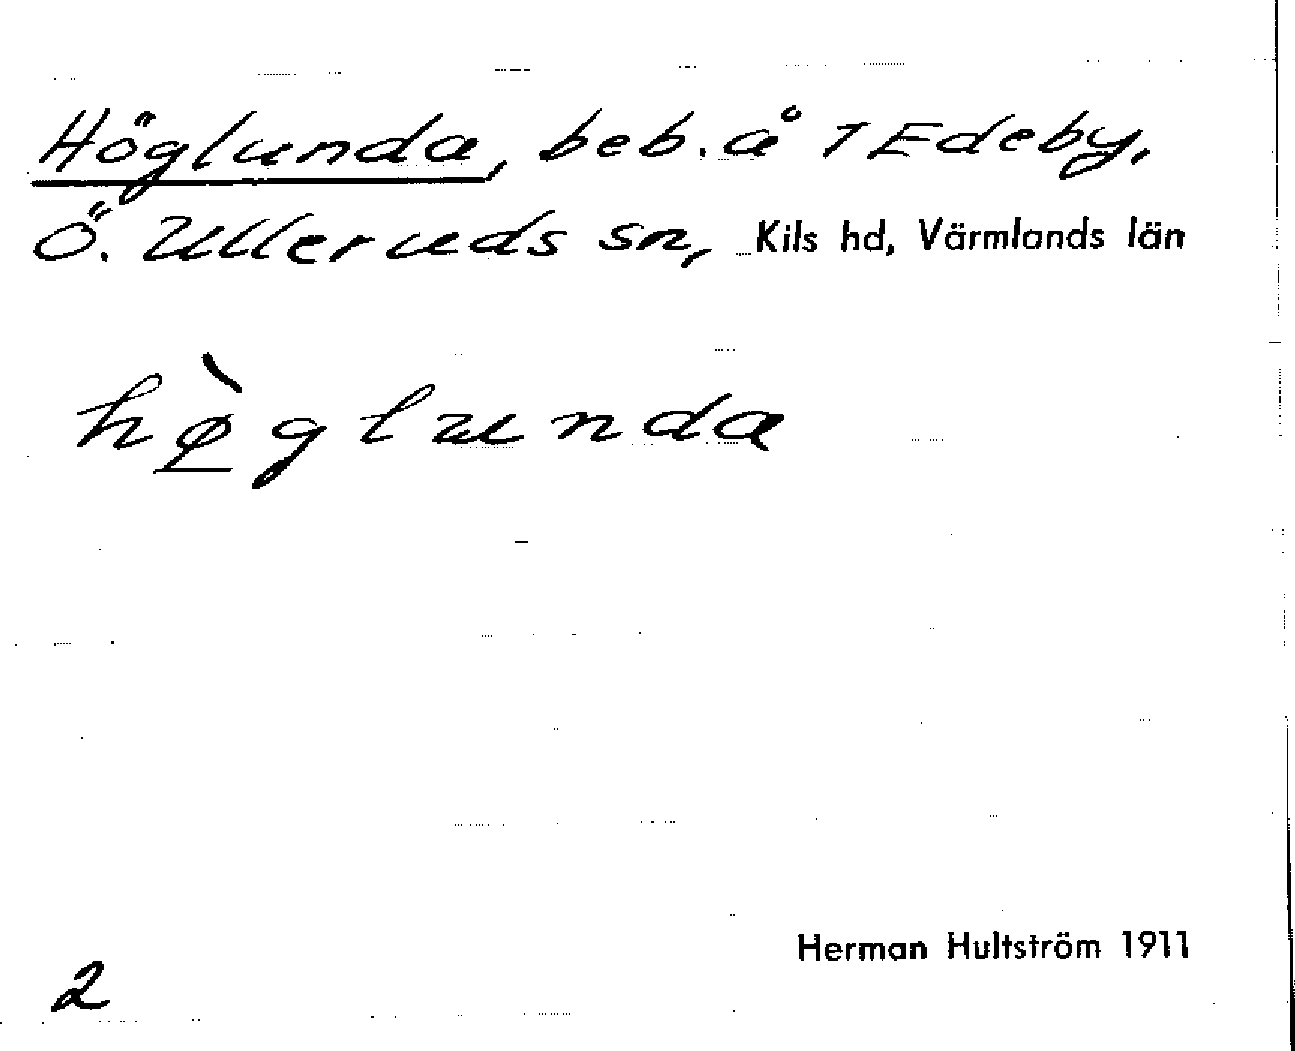 Höglunda, beb. å 1 Edeby,
Ö. Ulleruds sn, Kils hd, Värmlands län
hø̱̀glunda
Herman Hultström 1911
2